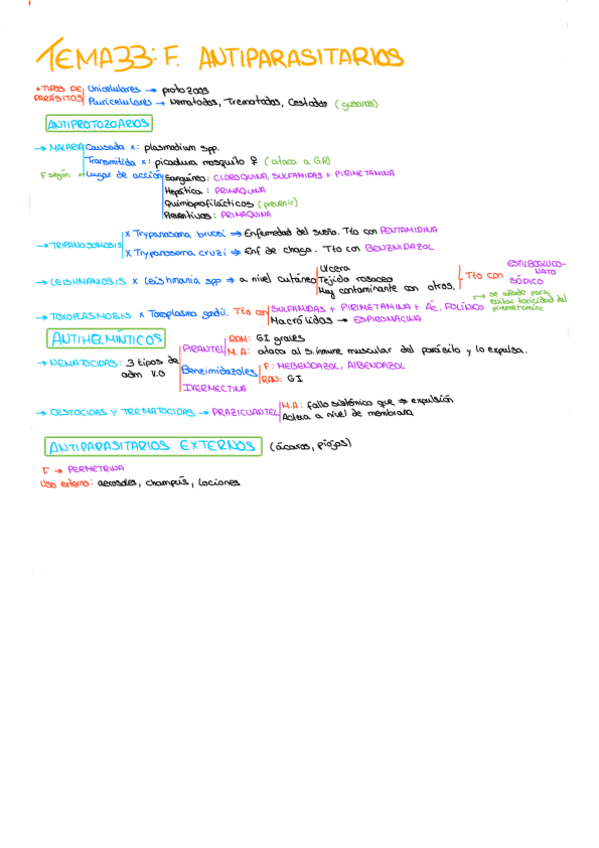 TEMA 33: F. ANTIPARASITARIOS
• TIPOS DE PARÁSITOS
Unicelulares → protozoos
Pluricelulares → Nematodos, Trematodos, Cestodos (gusanos)
ANTIPROTOZOARIOS
→ MALARIA
Causada x: plasmodium spp.
Transmitida x: picadura mosquito ♀ (ataca a GR)
F según → Lugar de acción
Sanguíneo: CLOROQUINA, SULFAMIDAS + PIRIMETAMINA
Hepática: PRIMAQUINA
Quimioprofilácticos (prevenir)
Preventivos: PRIMAQUINA
→ TRIPANOSOMOSIS
x Trypanosoma brucei → Enfermedad del sueño. Tto con PENTAMIDINA
x Trypanosoma cruzi → Enf de chaga. Tto con BENZNIDAZOL
→ LEISHMANIOSIS x Leishmania spp → a nivel cutáneo
Ulcera
Tejido rosaceo
Muy contaminante con otros.
Tto con
ESTILBOGLUCO-
NATO
SÓDICO
→ TOXOPLASMOSIS x Toxoplasma gondii. Tto con
SULFAMIDAS + PIRIMETAMINA + ÁC. FOLÍNICO
→ se añade para evitar toxicidad del pirimetamina
Macrólidos → ESPIRONACINA
ANTIHELMÍNTICOS
→ NEMATOCIDAS: 3 tipos de adm V.O
PIRANTEL
RAM: GI graves
M.A: ataca al s. inmune muscular del parásito y lo expulsa.
Benzimidazoles
F: MEBENDAZOL, ALBENDAZOL
RAM: GI
IVERMECTINA
→ CESTOCIDAS Y TREMATOCIDAS → PRAZICUANTEL
M.A: fallo sistémico que → expulsión
Actúa a nivel de membrana
ANTIPARASITARIOS EXTERNOS (ácaros, piojos)
F → PERMETRINA
Uso externo: aerosoles, champús, lociones